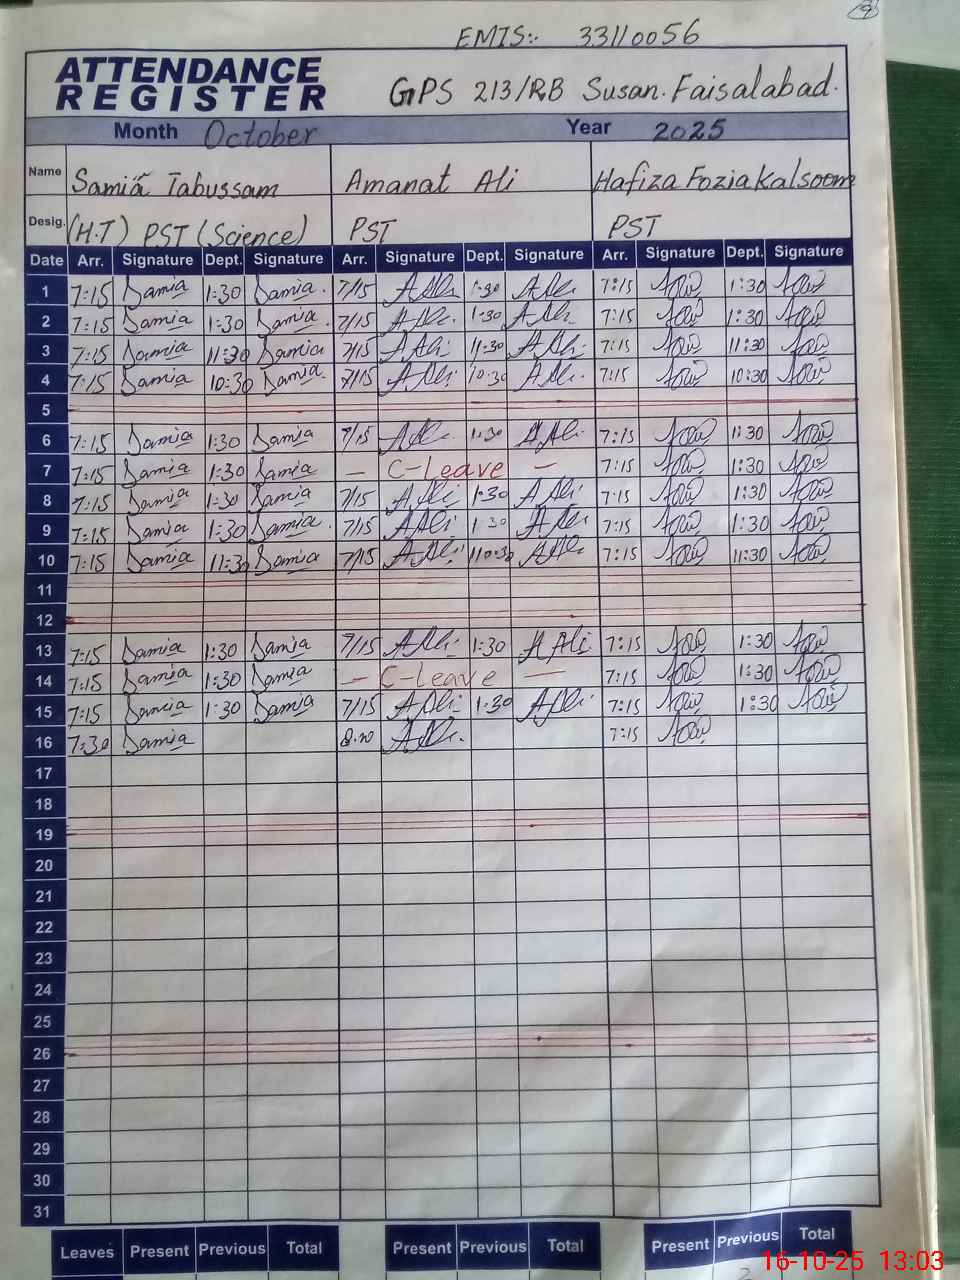 9
EMIS:- 33110056
ATTENDANCE
REGISTER
GPS 213/RB Susan. Faisalabad.
Month October Year 2025
Name Samia Tabussam Amanat Ali Hafiza Fozia Kalsoom
Desig. (H.T) PST (Science) PST PST
Date Arr. Signature Dept. Signature Arr. Signature Dept. Signature Arr. Signature Dept. Signature
1 7:15 Samia 1:30 Samia. 7/15 A Ali 1:30 A Ali 7:15 1:30
2 7:15 Samia 1:30 Samia. 7/15 A Ali. 1:30 A Ali 7:15 1:30
3 7:15 Samia 11:30 Samia 7/15 A Ali 11:30 A Ali 7:15 11:30
4 7:15 Samia 10:30 Samia. 7/15 A Ali 10:30 A Ali. 7:15 10:30
5
6 7:15 Samia 1:30 Samia 7/15 A Ali 1:30 A Ali 7:15 1:30
7 7:15 Samia 1:30 Samia - C-Leave - 7:15 1:30
8 7:15 Samia 1:30 Samia 7/15 A Ali 1:30 A Ali 7:15 1:30
9 7:15 Samia 1:30 Samia. 7/15 A Ali 1:30 A Ali 7:15 1:30
10 7:15 Samia 11:30 Samia 7/15 A Ali A Ali 7:15 11:30
11
12
13 7:15 Samia 1:30 Samia 7/15 A Ali 1:30 A Ali 7:15 1:30
14 7:15 Samia 1:30 Samia - C-Leave - 7:15 1:30
15 7:15 Samia 1:30 Samia 7/15 A Ali 1:30 A Ali 7:15 1:30
16 7:30 Samia A Ali. 7:15
17
18
19
20
21
22
23
24
25
26
27
28
29
30
31
Leaves Present Previous Total Present Previous Total Present Previous Total
16-10-25 13:03